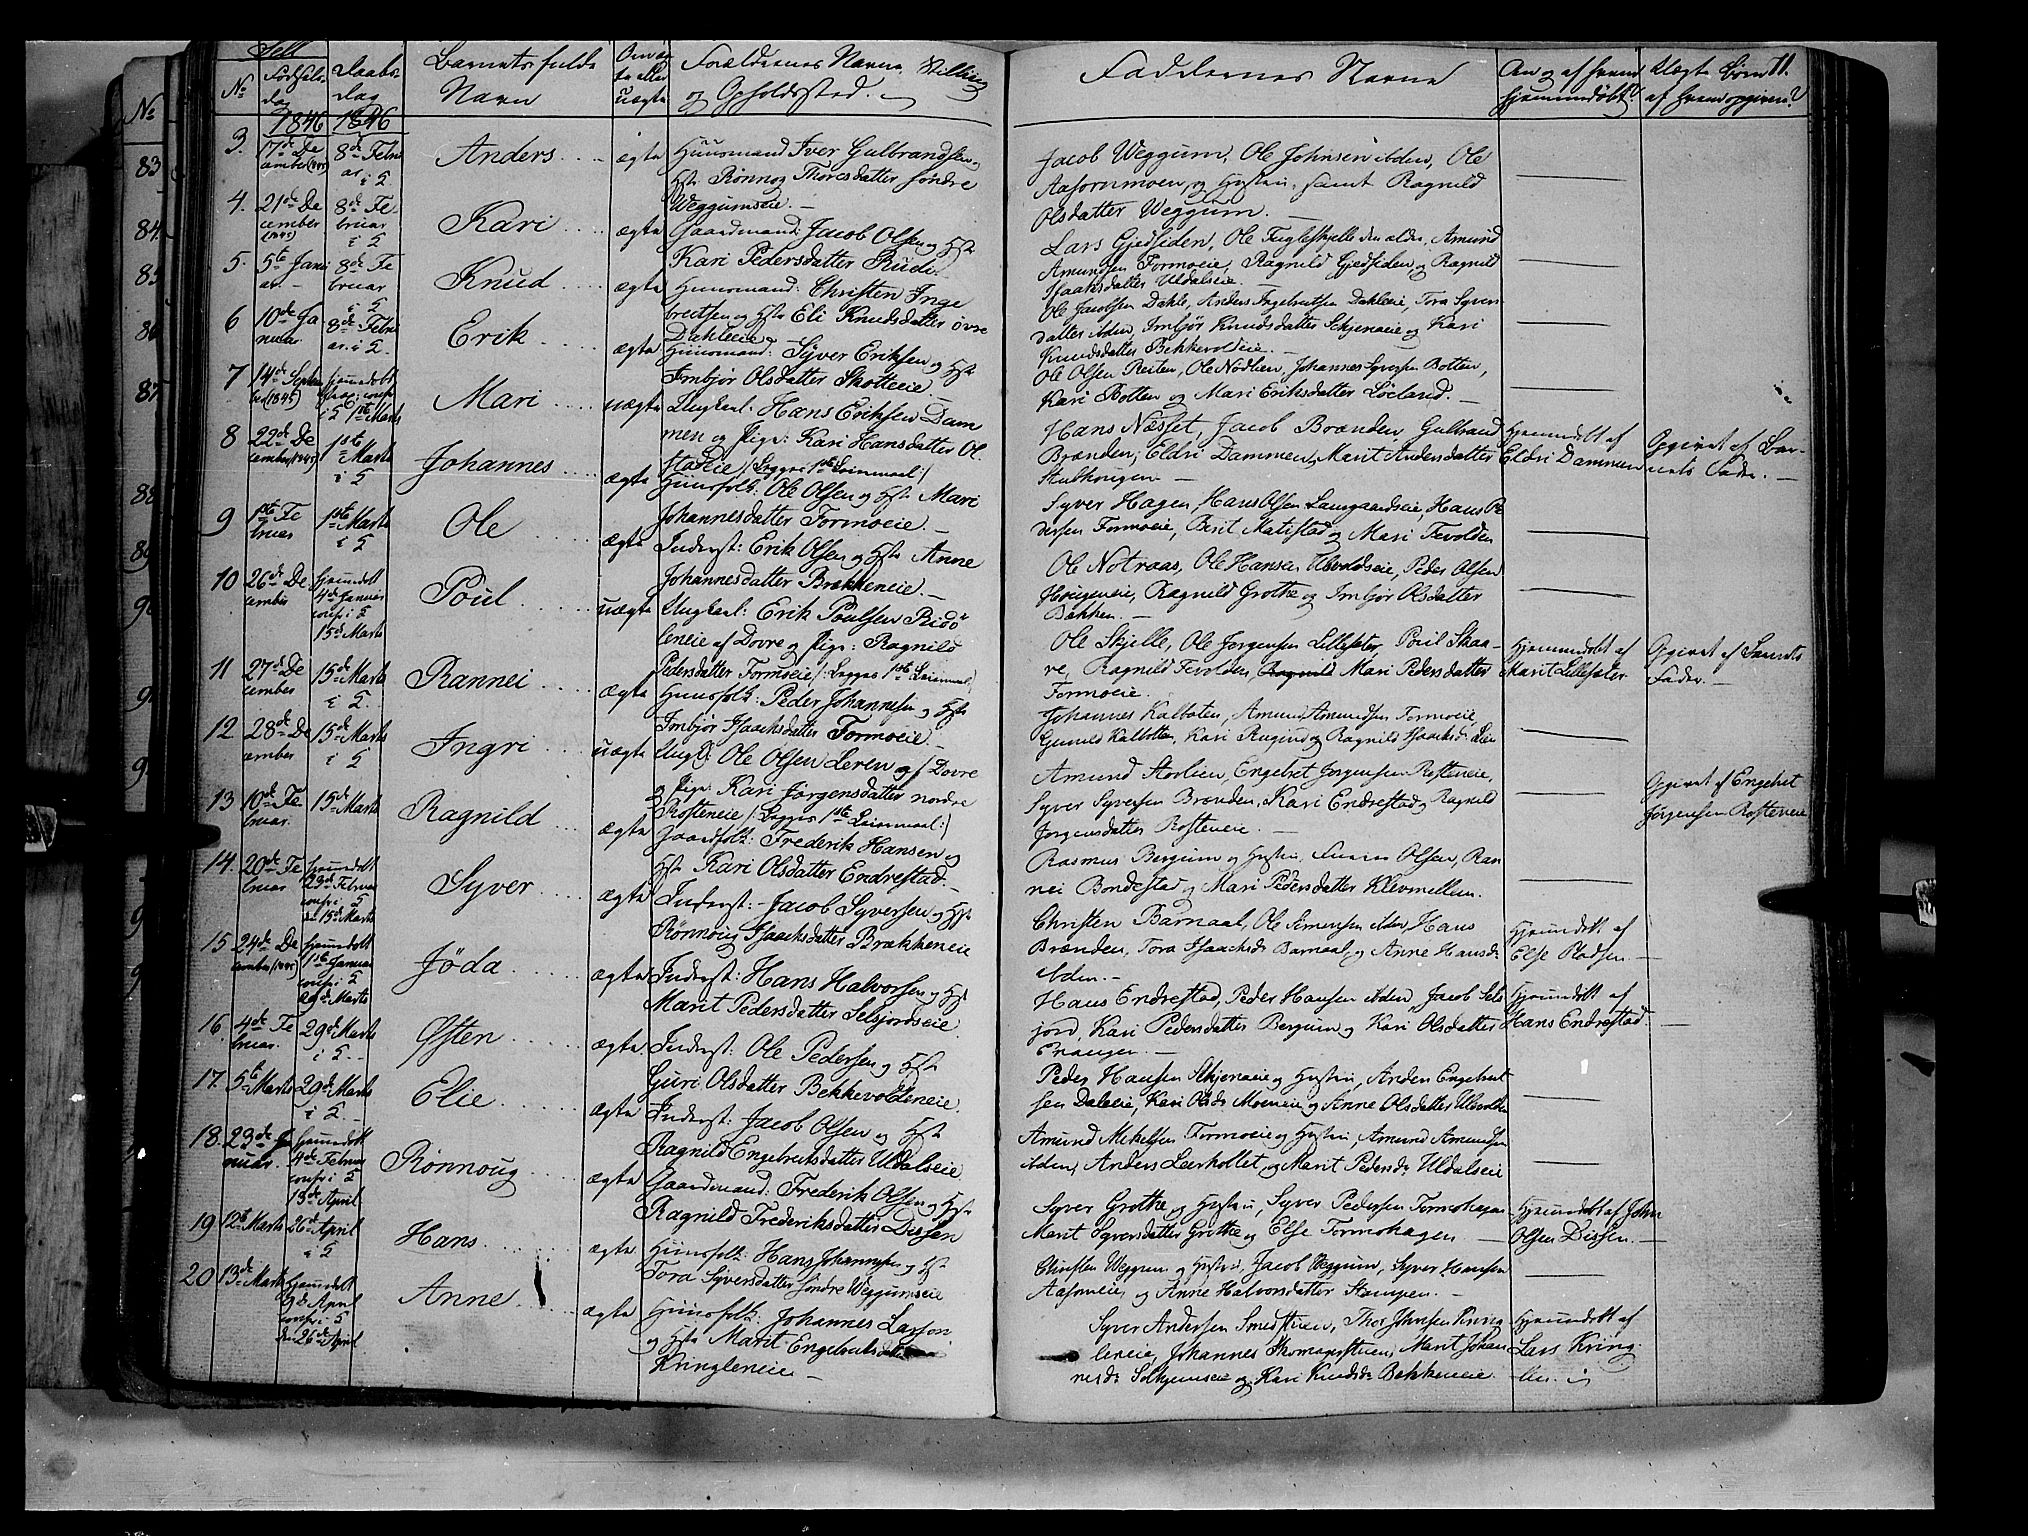 Sell
No Fødsels dag
Daabs dag
Barnets fulde Navn
Om ægte eller uægte
Forældrenes Navne, Stilling
og Opholdssted.
Faddernes Navne
Om og af hvem hjemmedøbt?
Uægte Børn
af hvem opgivne?
11.
No
83
84
85
86
87
88
89
1846 1846
3. 17de December (1845) 8de Februar i S Anders ægte
Huusmand Iver Gulbrandsen,
Hst. Rønnog Thoresdatter søndre
Weggumseie. —
Jacob Weggum, Ole Johnsen ibden, Ole
Aaformmoen, og Hustru, samt Ragnild
Olsdatter Weggum. —
4. 21de December (1845) 8de Februar i S Kari ægte
Gaardmand: Jacob Olsen og Hst
Kari Pedersdatter Rudi.
Lars Gjedsiden, Ole Fugleskjelle den ældre, Amund
Amundsen Formoeie, Ragnild Gjedsiden, og Ragnild
Isaaksdatter Uldalseie.
5. 5te Januar 8de Februar i S Knud ægte
Huusmand: Christen Inge
bretsen og Hst Eli Knudsdatter øvre
Dahleeie
Ole Jacobsen Dahle, Anders Ingebretsen Dahleeie, Tora Syvers
datter ibden, Imbjør Knudsdatter Skjenaeie og Kari
Knudsdatter Bekkevoldeie. —
6 10de Januar 8de Februar i S. Erik ægte
Huusmand: Syver Eriksen og Hst
Imbjør Olsdatter Skotteeie —
Ole Olsen Reiten, Ole Nødlien, Johannes Syversen Botten,
Kari Botten og Mari Eriksdatter Løeland. —
7 14de September (1845) hjemmedøbt i S 1ste Marts Mari uægte
Ungkarl: Hans Eriksen Dam
men og Pige: Kari Hansdatter Ol
stadeie /:Begges 1ste Leiermaal:/
Hans Næsset, Jacob Brænden, Gulbrand
Brænden, Eldri Dammen, Marit Andersdatter
Stubhougen —
Hjemmedøbt af
Eldri Dammen
Opgivet af Bar-
nets Fader. —
8 22de December (1845) 1ste Marts i S Johannes ægte
Huusfolk: Ole Olsen og Hst. Mari
Johannesdatter Formoeie. —
Syver Hagen, Hans Olsen Lamgaardseie, Hans Pe
dersen Formoeie, Berit Matistad og Mari Tevolden
9 1ste Februar 1ste Marts i S Ole ægte
Inderst: Erik Olsen og Hst Anne
Johannesdatter Brækkeneie. —
Ole Notraas, Ole Hansen Ulvoldseie, Peder Olsen
Hougeneie, Ragnild Grothe og Imbjør Olsdatter
Bakken. —
10 26de December hjemmedøbt 4de Januar conf: i S 15de Marts Poul uægte
Ungkarl: Erik Poulsen
leneie af Dovre og Pige: Ragnild
Pedersdatter Formoeie /:Begges 1ste Leiermaal:/
Ole Skjelle, Ole Jørgensen Lillesæter, Poul Skaa-
re, Ragnild Tevolden, Mari Pedersdatter
Formoeie.
Hjemmedøbt af
Marit Lillesæter
Opgivet af Barnets
Fader. —
11 27de December 15de Marts i S. Rannei ægte
Huusfolk: Peder Johannesen og Hst
Imbjør Isaachsdatter Formoeie. —
Johannes Kalboten, Amund Amundsen Formoeie,
Gunild Kalbotten, Kari og Ragnild Isaachsd.
12 28de December 15de Marts i S Ingri uægte
Ungk: Ole Olsen Leren af Dovre
og Pige: Kari Jørgensdatter nordre
Rosteneie /:Begges 1ste Leiermaal:/
Amund Storlien, Engebret Jørgensen Rosteneie,
Syver Syversen Brænden, Kari Endrestad og Ragnild
Jørgensdatter Rosteneie. —
Opgivet af Engebret
Jørgensen Rosteneie
13 10de Februar 15de Marts Ragnild ægte
Gaardfolk: Frederik Hansen og
Hst Kari Olsdatter Endrestad. —
Rasmus Bergum og Hustru, Olsen, Ran
nei Bondestad og Mari Pedersdatter Klevmellem.
14. 20de Februar hjemmedøbt 23de Februar conf: i S den 15de Marts Syver ægte
Inderst: Jacob Syversen og Hst
Rønnoug Isaachsdatter Brækkeneie
Christen Barnaal, Ole Simensen ibden, Hans
Brænden, Tora Isaachsd. Barnaal, og Anne Hansd.
ibden. —
Hjemmedøbt af
Else Pladsen. —
15 24de December (1845) hjemmedøbt 1ste Januar conf: i S 29de Marts Jøda ægte
Inderst: Hans Halvorsen og Hst
Marit Pedersdatter Selsjordseie
Hans Endrestad, Peder Hansen ibden, Jacob Sels
jord, Kari Pedersdatter Bergum og Kari Olsdatter
Hjemmedøbt af
Hans Endrestad.
16 4de Februar. 29de Marts i S. Østen ægte.
Inderst: Ole Pedersen og Hst
Guri Olsdatter Bekkevoldeneie.
Peder Hansen Skjenaeie og Hustru, Anders Engebret
sen Daleeie, Kari Olsd. Moeneie og Anne Olsdatter Ulvolden
17. 5te Marts 29de Marts i S. Elie ægte
Inderst: Jacob Olsen og Hst
Ragnild Engebretsdatter Uldalseie
Amund Mikelsen Formoeie og Hustru, Amund Amundsen
ibden, Anders Leerhollet, og Marit Pedersd. Uldalseie
18. 23de Januar. hjemmedøbt 4de Februar conf: i S 13de April Rønnoug ægte
Gaardmand: Frederik Olsen og Hst
Ragnild Frederiksdatter Dissen
Syver Grothe og Hustru, Syver Pedersen Formohagen
Marit Syversdatter Grothe og Else Formohagen —
Hjemmedøbt af John
Olsen Dissen. —
19 12te Marts 26de April i S Hans ægte
Huusfolk: Hans Johannesen og Hst
Tora Syversdatter søndre Weggumseie
Christen Weggum og Hustru, Jacob Weggum, Syver Hansen
Aasmeie, og Anne Halvorsdatter Stampen. —
20 13de Marts hjemmedøbt 9de April conf: i S den 26de April Anne ægte
Huusfolk: Johannes Larsen
og Hst. Marit Engebretsdatter
Kringleneie —
Syver Andersen Smedstuen, Thor Johnsen Kring
leneie, Johannes Thomasgstuen, Marit Johan
nesd. Solhjemseie og Kari Knudsd. Bekkeneie.
Hjemmedøbt af
Lars Kring-
len.